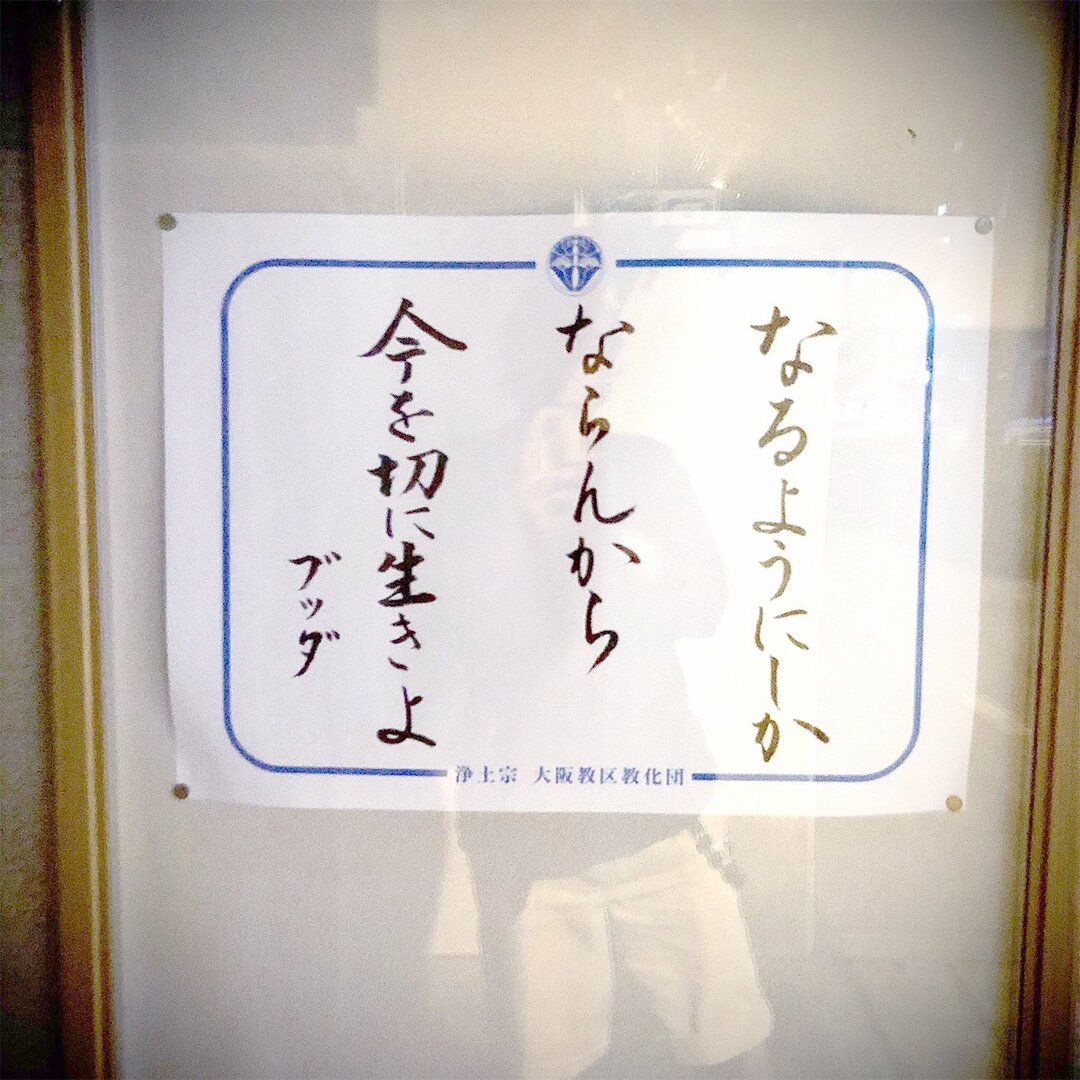 なるようにしか
ならんから
今を切に生きよ
ブッダ
浄土宗 大阪教区教化団